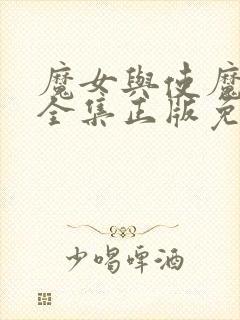 魔女與使魔
全集正版免
少喝啤酒